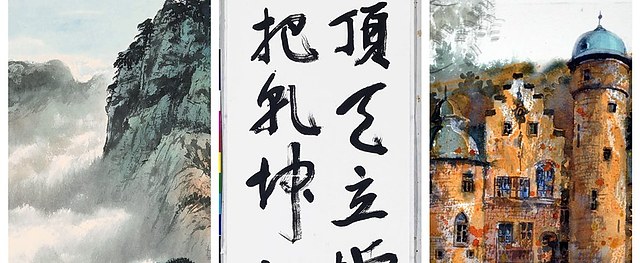 頂天立
把乾坤